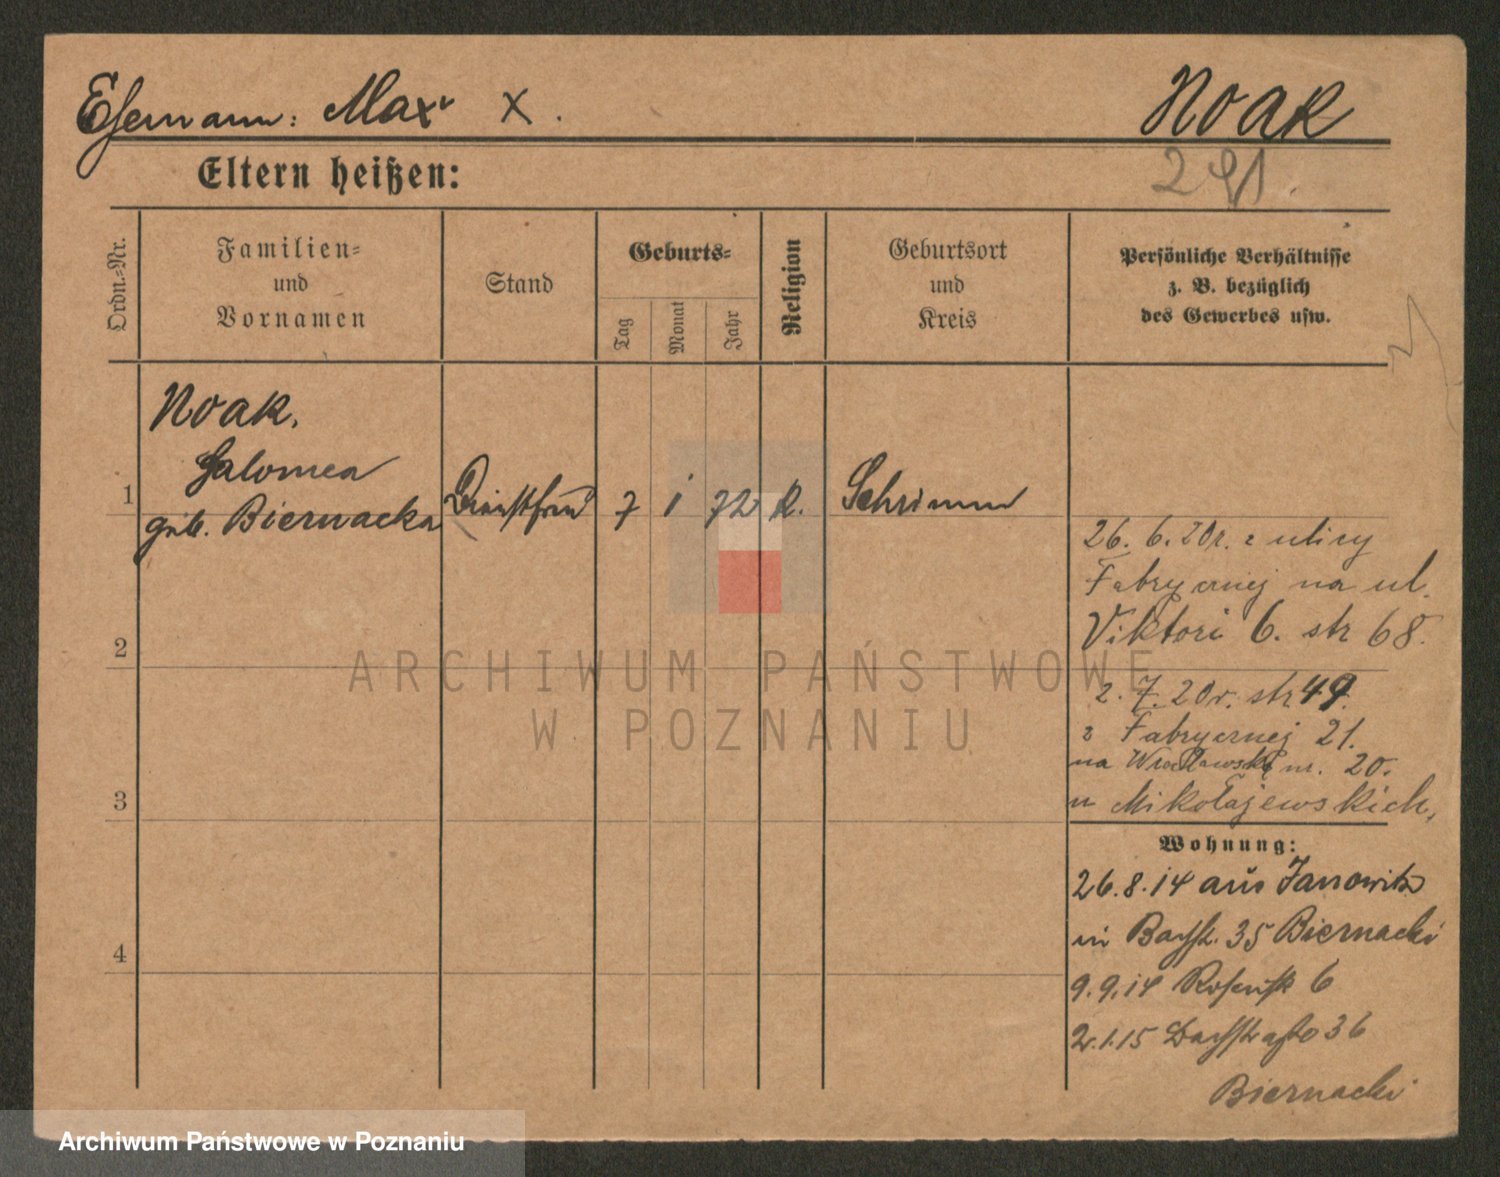 Ehemann: Max x.
Noak
291
Eltern heißen:
Ordn.=Nr.
Familien=
und
Vornamen
Stand
Geburts=
Tag
Monat
Jahr
Religion
Geburtsort
und
Kreis
Persönliche Verhältnisse
z. B. bezüglich
des Gewerbes usw.
Noak,
Salomea
1 geb. Biernacka
7 1 72 k. Schrimm
26. 6. 20r. z ulicy
Fabrycznej na ul.
Viktori 6. str 68.
2
2. 7. 20r. str 49
z Fabrycznej 21.
na Wrocławską nr. 20.
u Mikołajewskich,
3
Wohnung:
26. 8. 14 aus Janowitz
in 35 Biernacki
4
9. 9. 14 6
2. 1. 15 36
Biernacki
ARCHIWUM PAŃSTWOWE
W POZNANIU
Archiwum Państwowe w Poznaniu